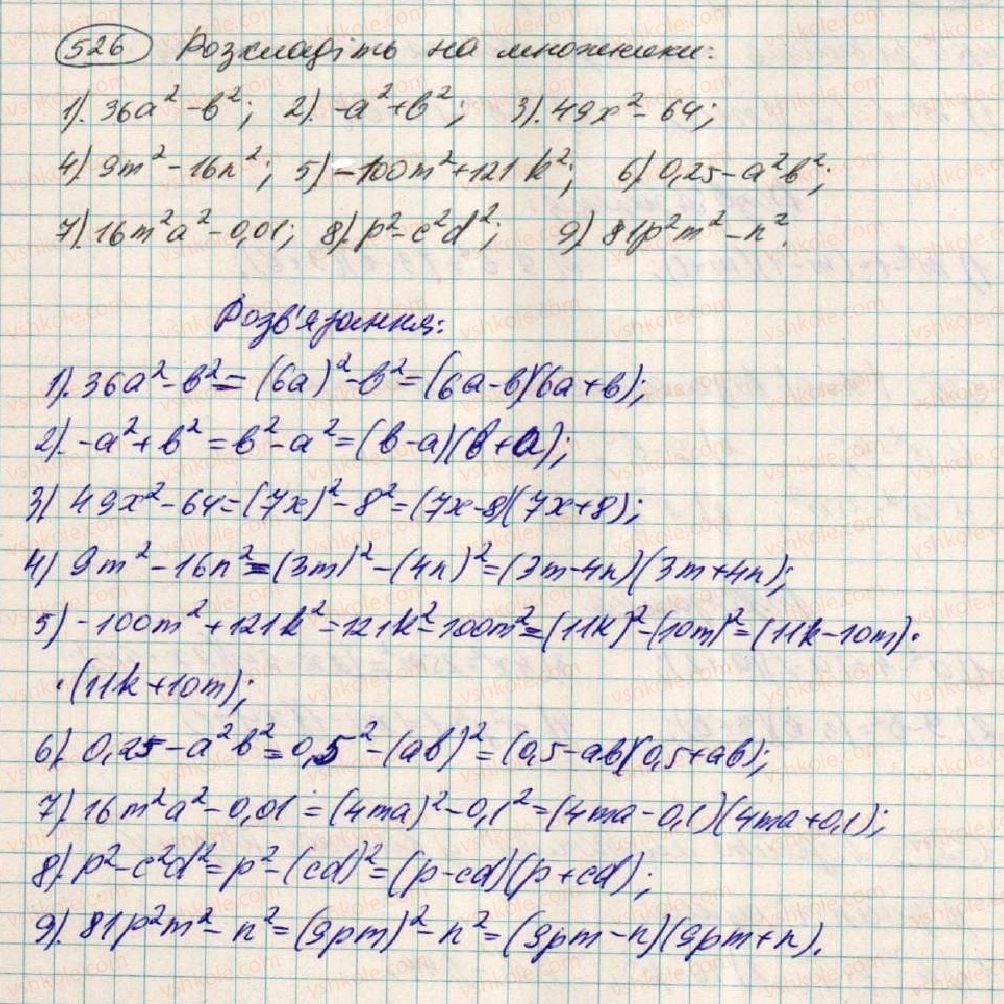 526 Розкладіть на множники:
1). 36a² - b²; 2). -a² + b²; 3). 49x² - 64;
4) 9m² - 16n²; 5) -100m² + 121k²; 6) 0,25 - a²b²;
7) 16m²a² - 0,01; 8). p² - c²d²; 9) 81p²m² - n².
Розв'язання:
1). 36a² - b² = (6a)² - b² = (6a - b)(6a + b);
2). -a² + b² = b² - a² = (b - a)(b + a);
3) 49x² - 64 = (7x)² - 8² = (7x - 8)(7x + 8);
4) 9m² - 16n² = (3m)² - (4n)² = (3m - 4n)(3m + 4n);
5) -100m² + 121k² = 121k² - 100m² = (11k)² - (10m)² = (11k - 10m)·
·(11k + 10m);
6) 0,25 - a²b² = 0,5² - (ab)² = (0,5 - ab)(0,5 + ab);
7) 16m²a² - 0,01 = (4ma)² - 0,1² = (4ma - 0,1)(4ma + 0,1);
8). p² - c²d² = p² - (cd)² = (p - cd)(p + cd);
9). 81p²m² - n² = (9pm)² - n² = (9pm - n)(9pm + n).